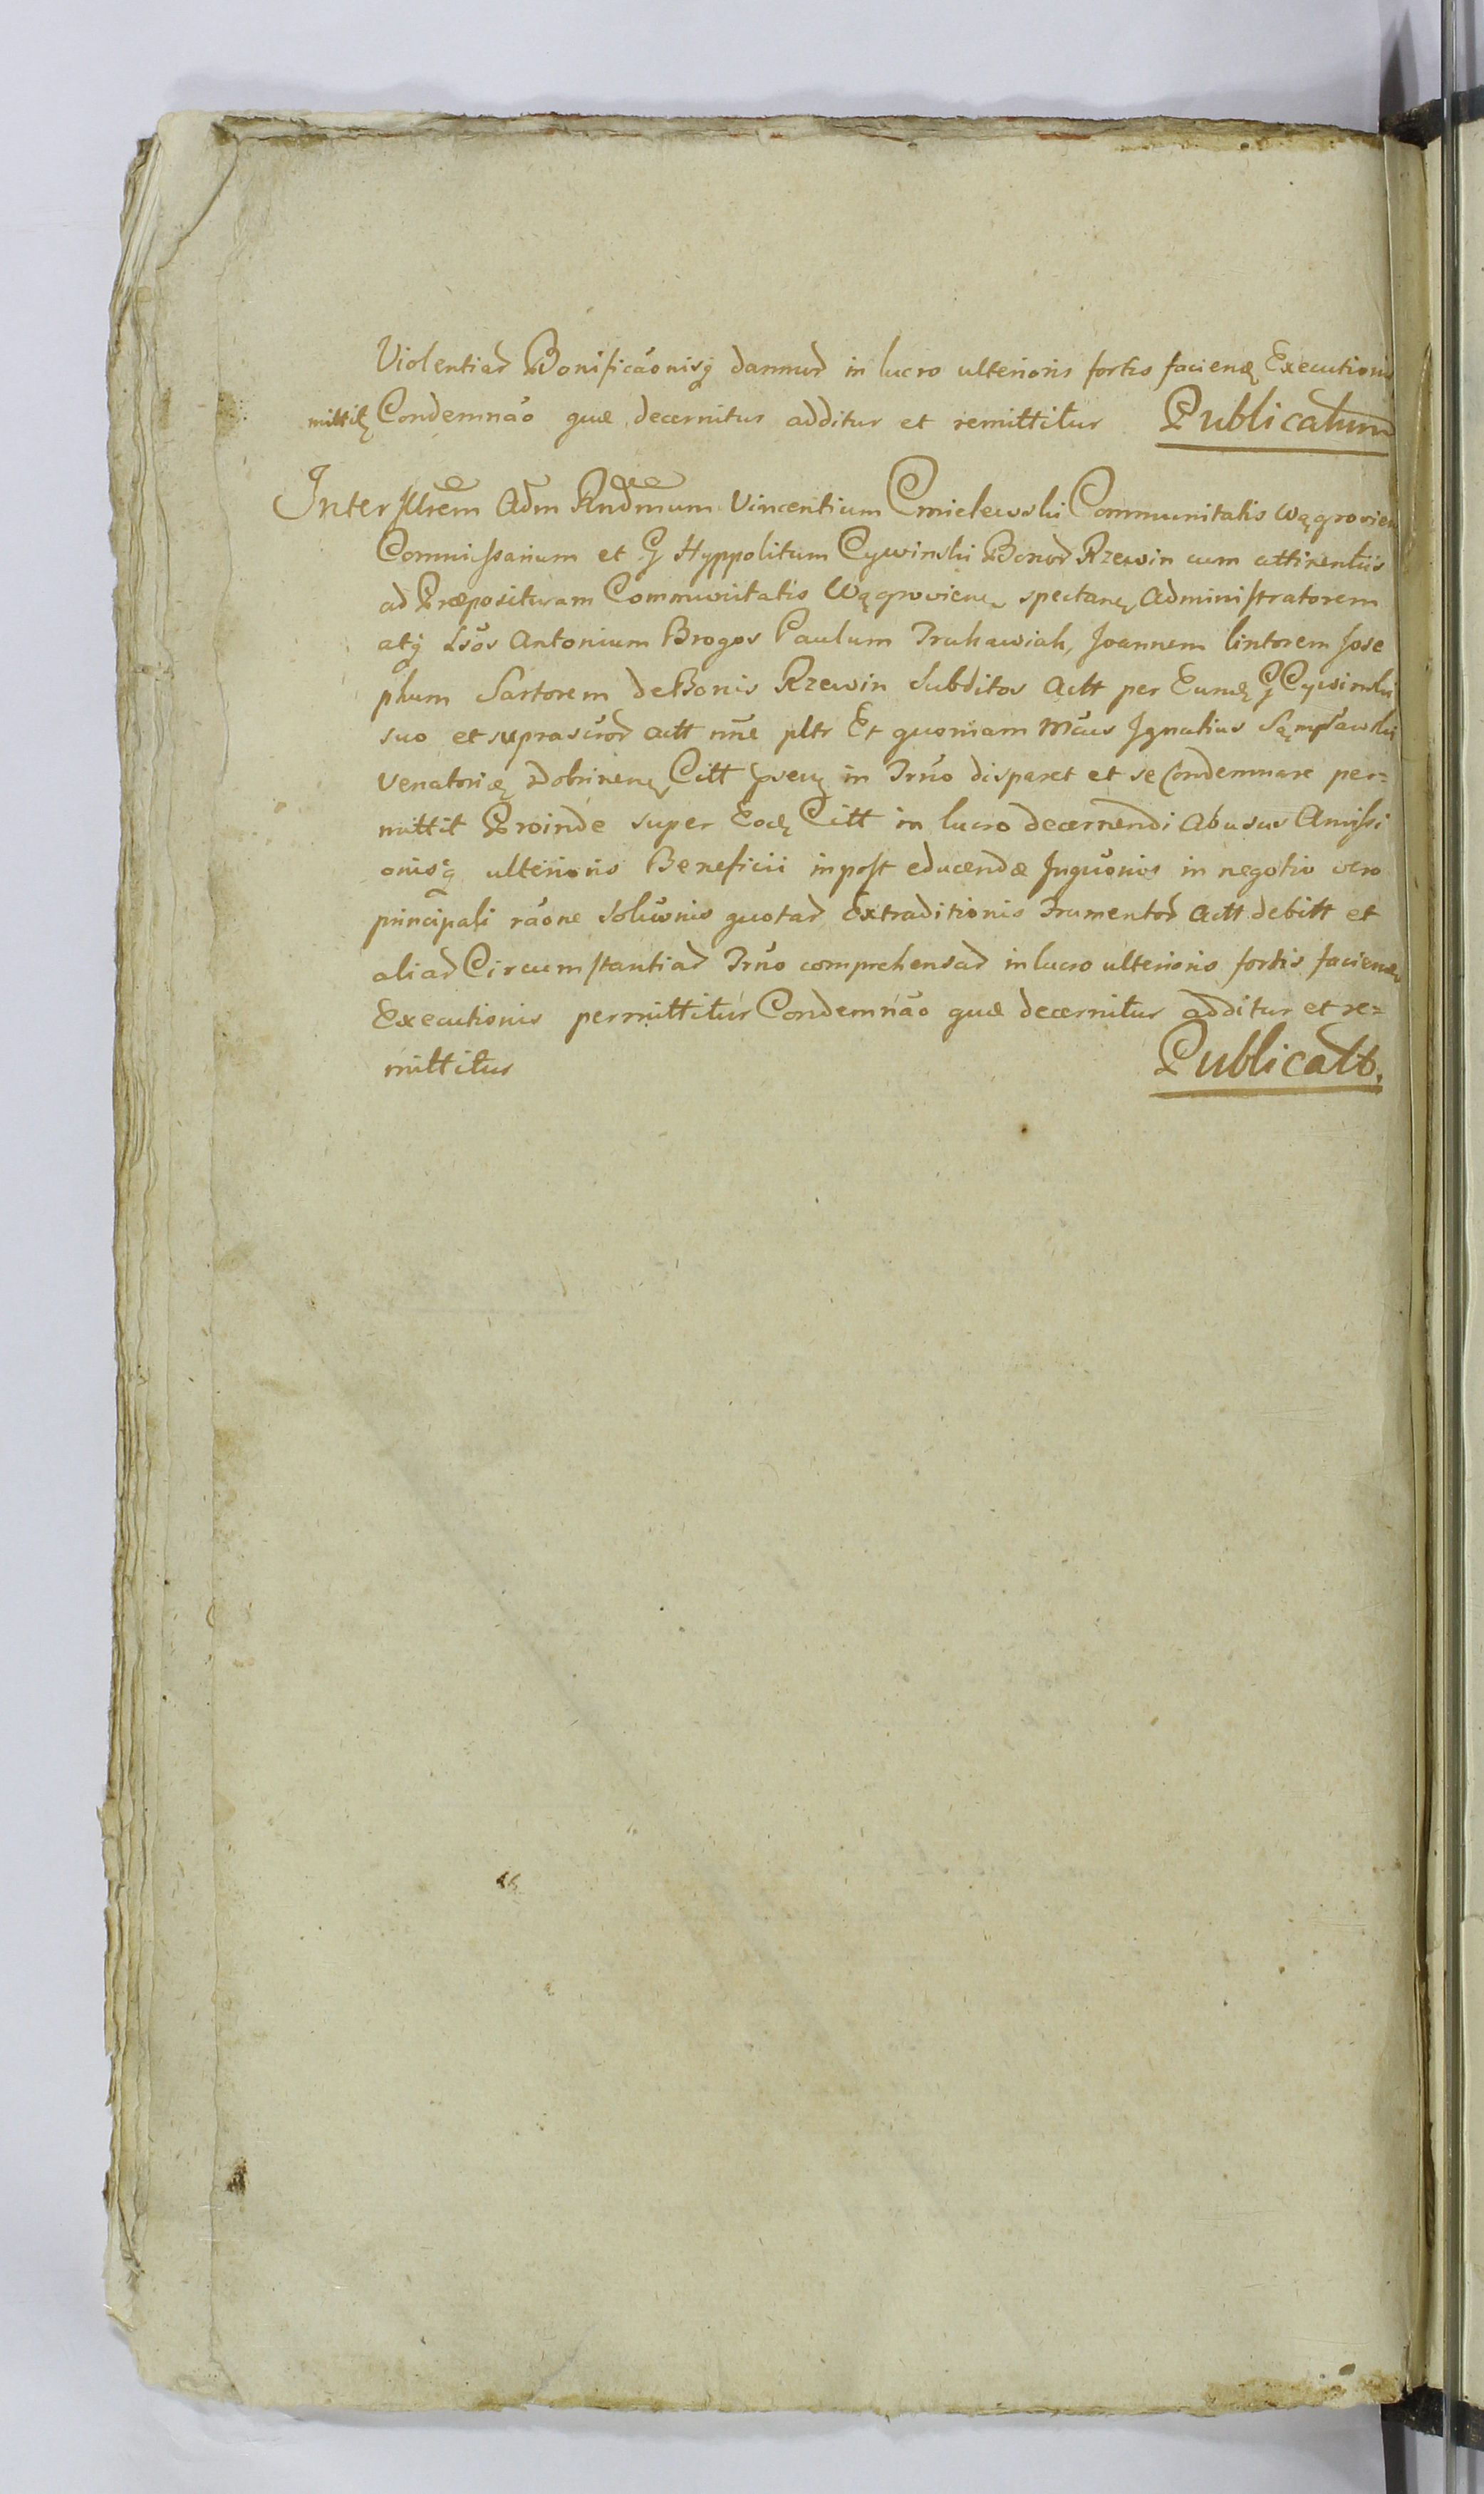 Violentiar Bonificãonisq damnor in lucro ulterioris fortis faciendę Executionis
mittitę Condemnão quæ decernitur additur et remittitur Publicatum
Inter Illrem Adm Rndmum Vincentium Cmielewski Communitatis Wągrovien
Commissarium et G Hyppolitum Cywinski Bonor Rzewin cum attinentiis
ad Præposituram Communitatis Wągrovienę spectanę Administratorem
atq Antonium Brogos Paulum Joannem lintorem Jose
phum Sartorem de Bonis Rzewin Subditos Actt per Eundę G Cywinski
suo et suprascror actt nne pltr Et quoniam Mcus Ignatius
Venatoridę Dobrinenę Citt in Trno disparet et se Condemnare per=
mittit Proinde super Eodę Citt in lucro decernendi Abusus Amissi
onisq ulterioris Beneficii in post educendæ in negotio vero
principali rãone Soluõnis quotar Extraditionis Frumentor Actt debitt et
aliar Circumstantiar Trno comprehensar in lucro ulterioris fortis faciendę
Executionis permittitur Condemnão quæ decernitur additur et re=
mittitur Publicatt.